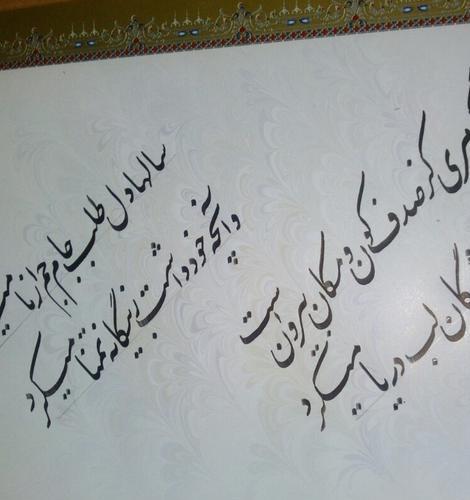 سالها دل طلب جام جم از ما می
وآنچه خود داشت ز بیگانه تمنا میکرد
هری کز صدف کون و مکان بیرون است
گان لب دریا میکرد